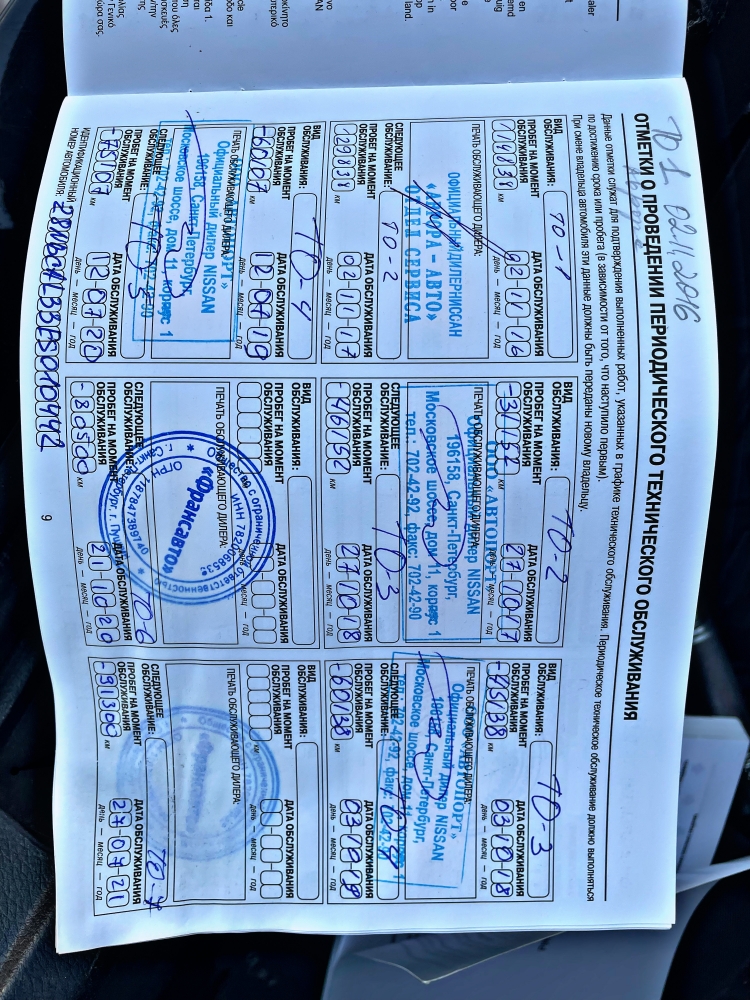 ТО 1 02.11.2016
ОТМЕТКИ О ПРОВЕДЕНИИ ПЕРИОДИЧЕСКОГО ТЕХНИЧЕСКОГО ОБСЛУЖИВАНИЯ
Данные отметки служат для подтверждения выполненных работ, указанных в графике технического обслуживания. Периодическое техническое обслуживание должно выполняться
по достижению срока или пробега (в зависимости от того, что наступило первым).
При смене владельца автомобиля эти данные должны быть переданы новому владельцу.
ВИД ОБСЛУЖИВАНИЯ: ТО-1
ПРОБЕГ НА МОМЕНТ ОБСЛУЖИВАНИЯ
КМ
ДАТА ОБСЛУЖИВАНИЯ
02-11-16
день — месяц — год
ПЕЧАТЬ ОБСЛУЖИВАЮЩЕГО ДИЛЕРА:
ОФИЦИАЛЬНЫЙ ДИЛЕР НИССАН
«АВРОРА - АВТО»
ОТДЕЛ СЕРВИСА
СЛЕДУЮЩЕЕ ОБСЛУЖИВАНИЕ: ТО-2
ПРОБЕГ НА МОМЕНТ ОБСЛУЖИВАНИЯ
КМ
ДАТА ОБСЛУЖИВАНИЯ
02-11-17
день — месяц — год
ВИД ОБСЛУЖИВАНИЯ: ТО-2
ПРОБЕГ НА МОМЕНТ ОБСЛУЖИВАНИЯ
-31152 КМ
ДАТА ОБСЛУЖИВАНИЯ
27-10-17
ПЕЧАТЬ ОБСЛУЖИВАЮЩЕГО ДИЛЕРА:
ООО «АВТОПОРТ»
Официальный дилер NISSAN
196158, Санкт-Петербург,
Московское шоссе, дом 11, корпус 1
тел.: 702-42-92, факс: 702-42-90
СЛЕДУЮЩЕЕ ОБСЛУЖИВАНИЕ: ТО-3
ПРОБЕГ НА МОМЕНТ ОБСЛУЖИВАНИЯ
-46152 КМ
ДАТА ОБСЛУЖИВАНИЯ
27-10-18
день — месяц — год
ВИД ОБСЛУЖИВАНИЯ: ТО-3
ПРОБЕГ НА МОМЕНТ ОБСЛУЖИВАНИЯ
-45138 КМ
ДАТА ОБСЛУЖИВАНИЯ
03-10-18
день — месяц — год
ПЕЧАТЬ ОБСЛУЖИВАЮЩЕГО ДИЛЕРА:
«АВТОПОРТ»
Официальный дилер NISSAN
196158, Санкт-Петербург,
Московское шоссе, дом 11,
тел.: 702-42-92, факс: 702-42-
СЛЕДУЮЩЕЕ ОБСЛУЖИВАНИЕ:
ПРОБЕГ НА МОМЕНТ ОБСЛУЖИВАНИЯ
-60138 КМ
ДАТА ОБСЛУЖИВАНИЯ
03-10-19
день — месяц — год
ВИД ОБСЛУЖИВАНИЯ: ТО-4
ПРОБЕГ НА МОМЕНТ ОБСЛУЖИВАНИЯ
-60107 КМ
ДАТА ОБСЛУЖИВАНИЯ
ПЕЧАТЬ ОБСЛУЖИВАЮЩЕГО ДИЛЕРА:
Официальный дилер NISSAN
196158, Санкт-Петербург,
Московское шоссе, дом 11, корпус 1
СЛЕДУЮЩЕЕ
ПРОБЕГ НА МОМЕНТ ОБСЛУЖИВАНИЯ
-75107 КМ
ДАТА ОБСЛУЖИВАНИЯ
12-07-20
день — месяц — год
ВИД ОБСЛУЖИВАНИЯ:
ПРОБЕГ НА МОМЕНТ ОБСЛУЖИВАНИЯ
ДАТА ОБСЛУЖИВАНИЯ
день — месяц — год
ПЕЧАТЬ ОБСЛУЖИВАЮЩЕГО ДИЛЕРА:
Общество с ограниченной ответственностью
«Франсавто»
ОГРН 1187847389740
г. Санкт-Петербург, г. Пушкин
СЛЕДУЮЩЕЕ ОБСЛУЖИВАНИЕ: ТО 6
ПРОБЕГ НА МОМЕНТ ОБСЛУЖИВАНИЯ
-80500 КМ
ДАТА ОБСЛУЖИВАНИЯ
21-10-20
день — месяц — год
ВИД ОБСЛУЖИВАНИЯ:
ПРОБЕГ НА МОМЕНТ ОБСЛУЖИВАНИЯ
КМ
ДАТА ОБСЛУЖИВАНИЯ
день — месяц — год
ПЕЧАТЬ ОБСЛУЖИВАЮЩЕГО ДИЛЕРА:
СЛЕДУЮЩЕЕ ОБСЛУЖИВАНИЕ:
ПРОБЕГ НА МОМЕНТ ОБСЛУЖИВАНИЯ
-91300 КМ
ДАТА ОБСЛУЖИВАНИЯ
27-07-21
день — месяц — год
ИДЕНТИФИКАЦИОННЫЙ НОМЕР АВТОМОБИЛЯ:
9